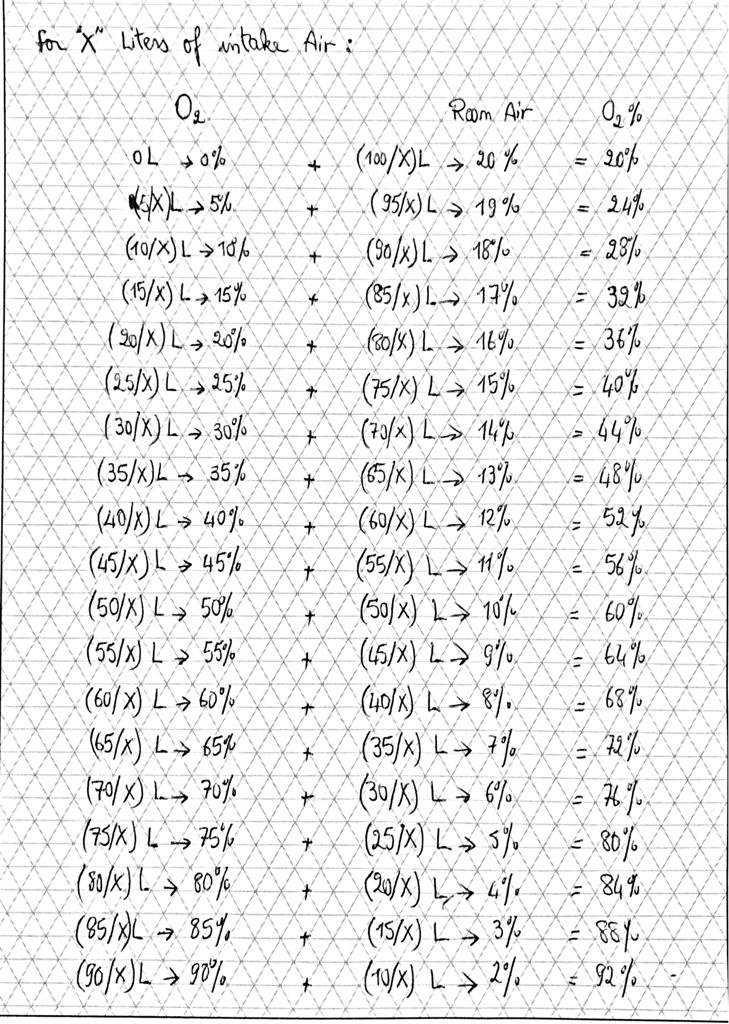 for "X" Liters of intake Air :
O₂ Room Air O₂%
0L → 0% + (100/X)L → 20% = 20%
(5/X)L → 5% + (95/X)L → 19% = 24%
(10/X)L → 10% + (90/X)L → 18% = 28%
(15/X)L → 15% + (85/X)L → 17% = 32%
(20/X)L → 20% + (80/X)L → 16% = 36%
(25/X)L → 25% + (75/X)L → 15% = 40%
(30/X)L → 30% + (70/X)L → 14% = 44%
(35/X)L → 35% + (65/X)L → 13% = 48%
(40/X)L → 40% + (60/X)L → 12% = 52%
(45/X)L → 45% + (55/X)L → 11% = 56%
(50/X)L → 50% + (50/X)L → 10% = 60%
(55/X)L → 55% + (45/X)L → 9% = 64%
(60/X)L → 60% + (40/X)L → 8% = 68%
(65/X)L → 65% + (35/X)L → 7% = 72%
(70/X)L → 70% + (30/X)L → 6% = 76%
(75/X)L → 75% + (25/X)L → 5% = 80%
(80/X)L → 80% + (20/X)L → 4% = 84%
(85/X)L → 85% + (15/X)L → 3% = 88%
(90/X)L → 90% + (10/X)L → 2% = 92%